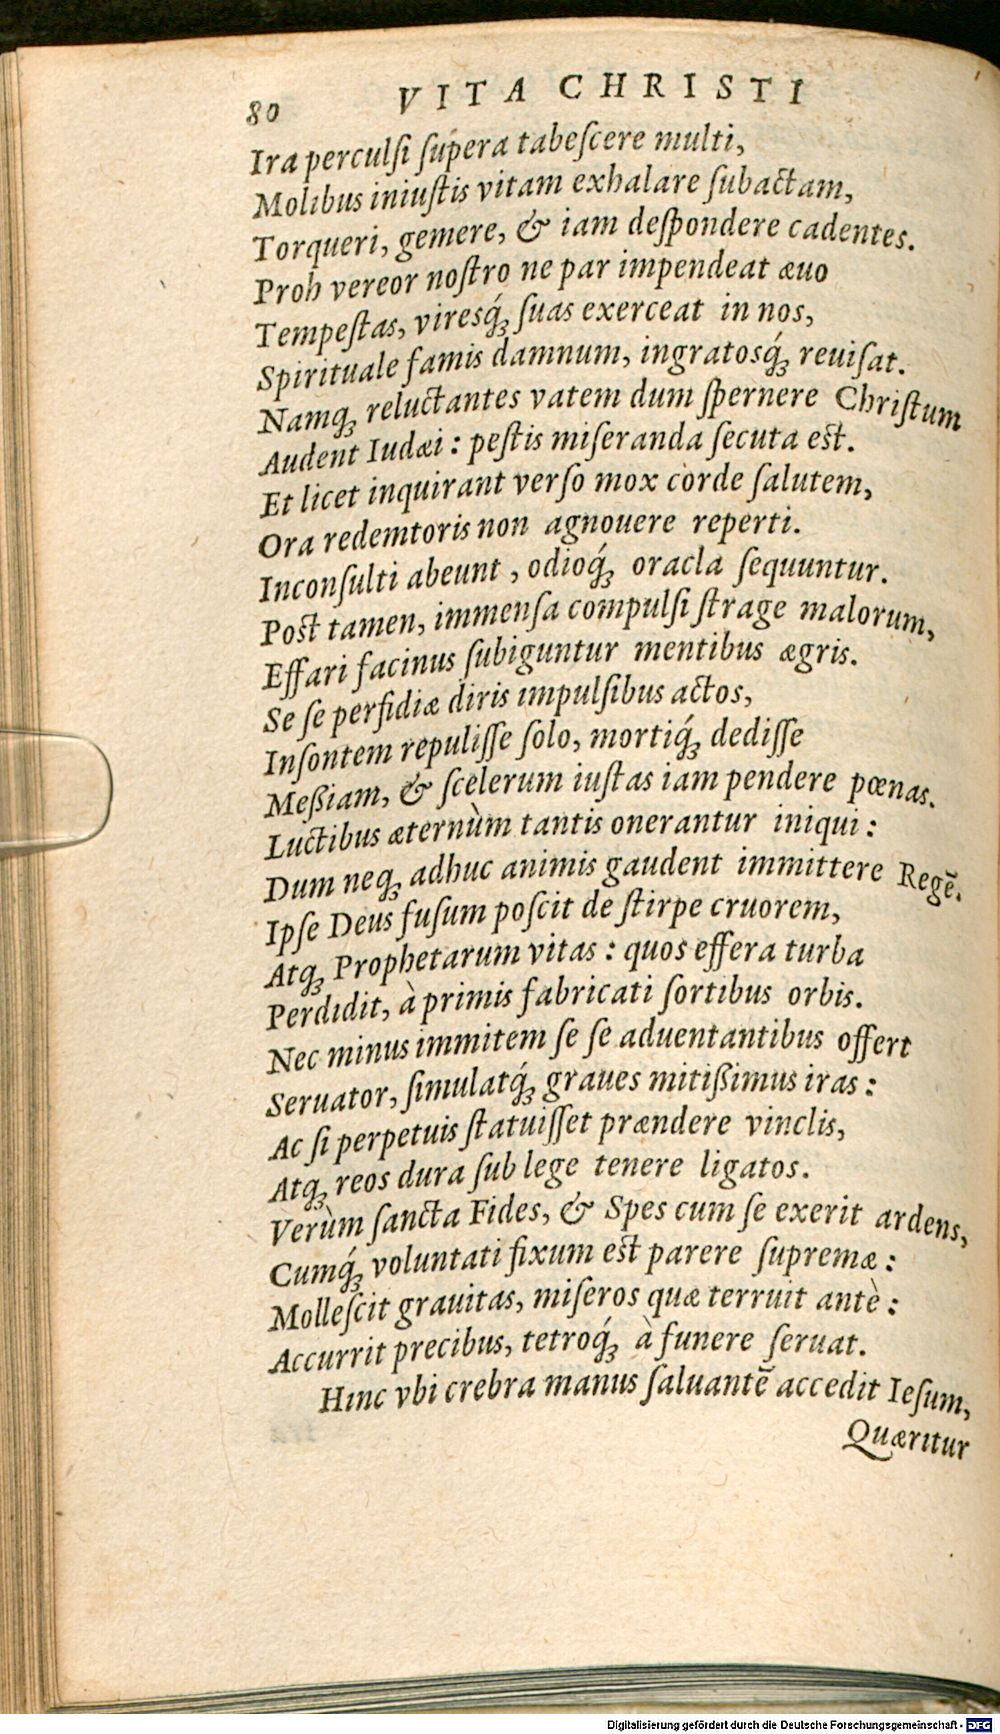 80 VITA CHRISTI
Ira perculſi ſupera tabeſcere multi,
Molibus iniuſtis vitam exhalare ſubactam,
Torqueri, gemere, & iam deſpondere cadentes.
Proh vereor noſtro ne par impendeat æuo
Tempeſtas, viresq́ꝫ ſuas exerceat in nos,
Spirituale famis damnum, ingratosq́ꝫ reuiſat.
Namqꝫ reluctantes vatem dum ſpernere Chriſtum
Audent Iudæi : peſtis miſeranda ſecuta eſt.
Et licet inquirant verſo mox corde ſalutem,
Ora redemtoris non agnouere reperti.
Inconſulti abeunt, odioq́ꝫ oracla ſequuntur.
Poſt tamen, immenſa compulſi ſtrage malorum,
Effari facinus ſubiguntur mentibus ægris.
Se ſe perfidiæ diris impulſibus actos,
Inſontem repuliſſe ſolo, mortiq́ꝫ dediſſe
Meßiam, & ſcelerum iuſtas iam pendere pœnas.
Luctibus æternùm tantis onerantur iniqui :
Dum neqꝫ adhuc animis gaudent immittere Regē.
Ipſe Deus fuſum poſcit de ſtirpe cruorem,
Atqꝫ Prophetarum vitas : quos effera turba
Perdidit, à primis fabricati ſortibus orbis.
Nec minus immitem ſe ſe aduentantibus offert
Seruator, ſimulatq́ꝫ graues mitißimus iras :
Ac ſi perpetuis ſtatuiſſet prændere vinclis,
Atqꝫ reos dura ſub lege tenere ligatos.
Verùm ſancta Fides, & Spes cum ſe exerit ardens,
Cumq́ꝫ voluntati fixum eſt parere ſupremæ :
Molleſcit grauitas, miſeros quæ terruit antè :
Accurrit precibus, tetroq́ꝫ à funere ſeruat.
Hinc vbi crebra manus ſaluantē accedit Ieſum,
Quæritur
Digitalisierung gefördert durch die Deutsche Forschungsgemeinschaft - DFG